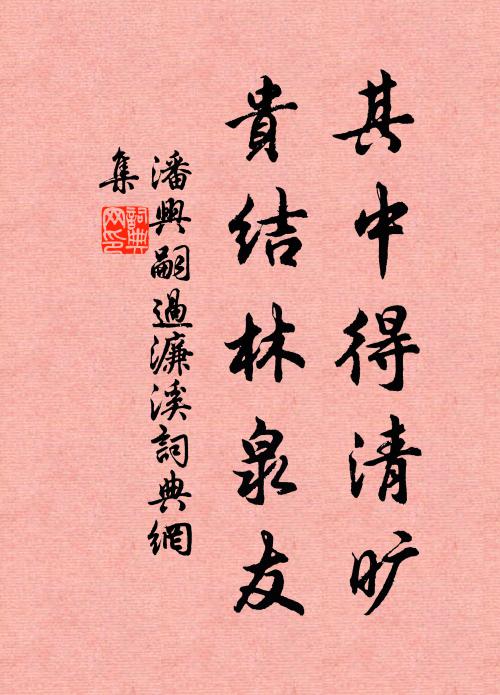 其中得清旷
貴结林泉友
潘興嗣過濂溪詞典網
集
詞典
网印